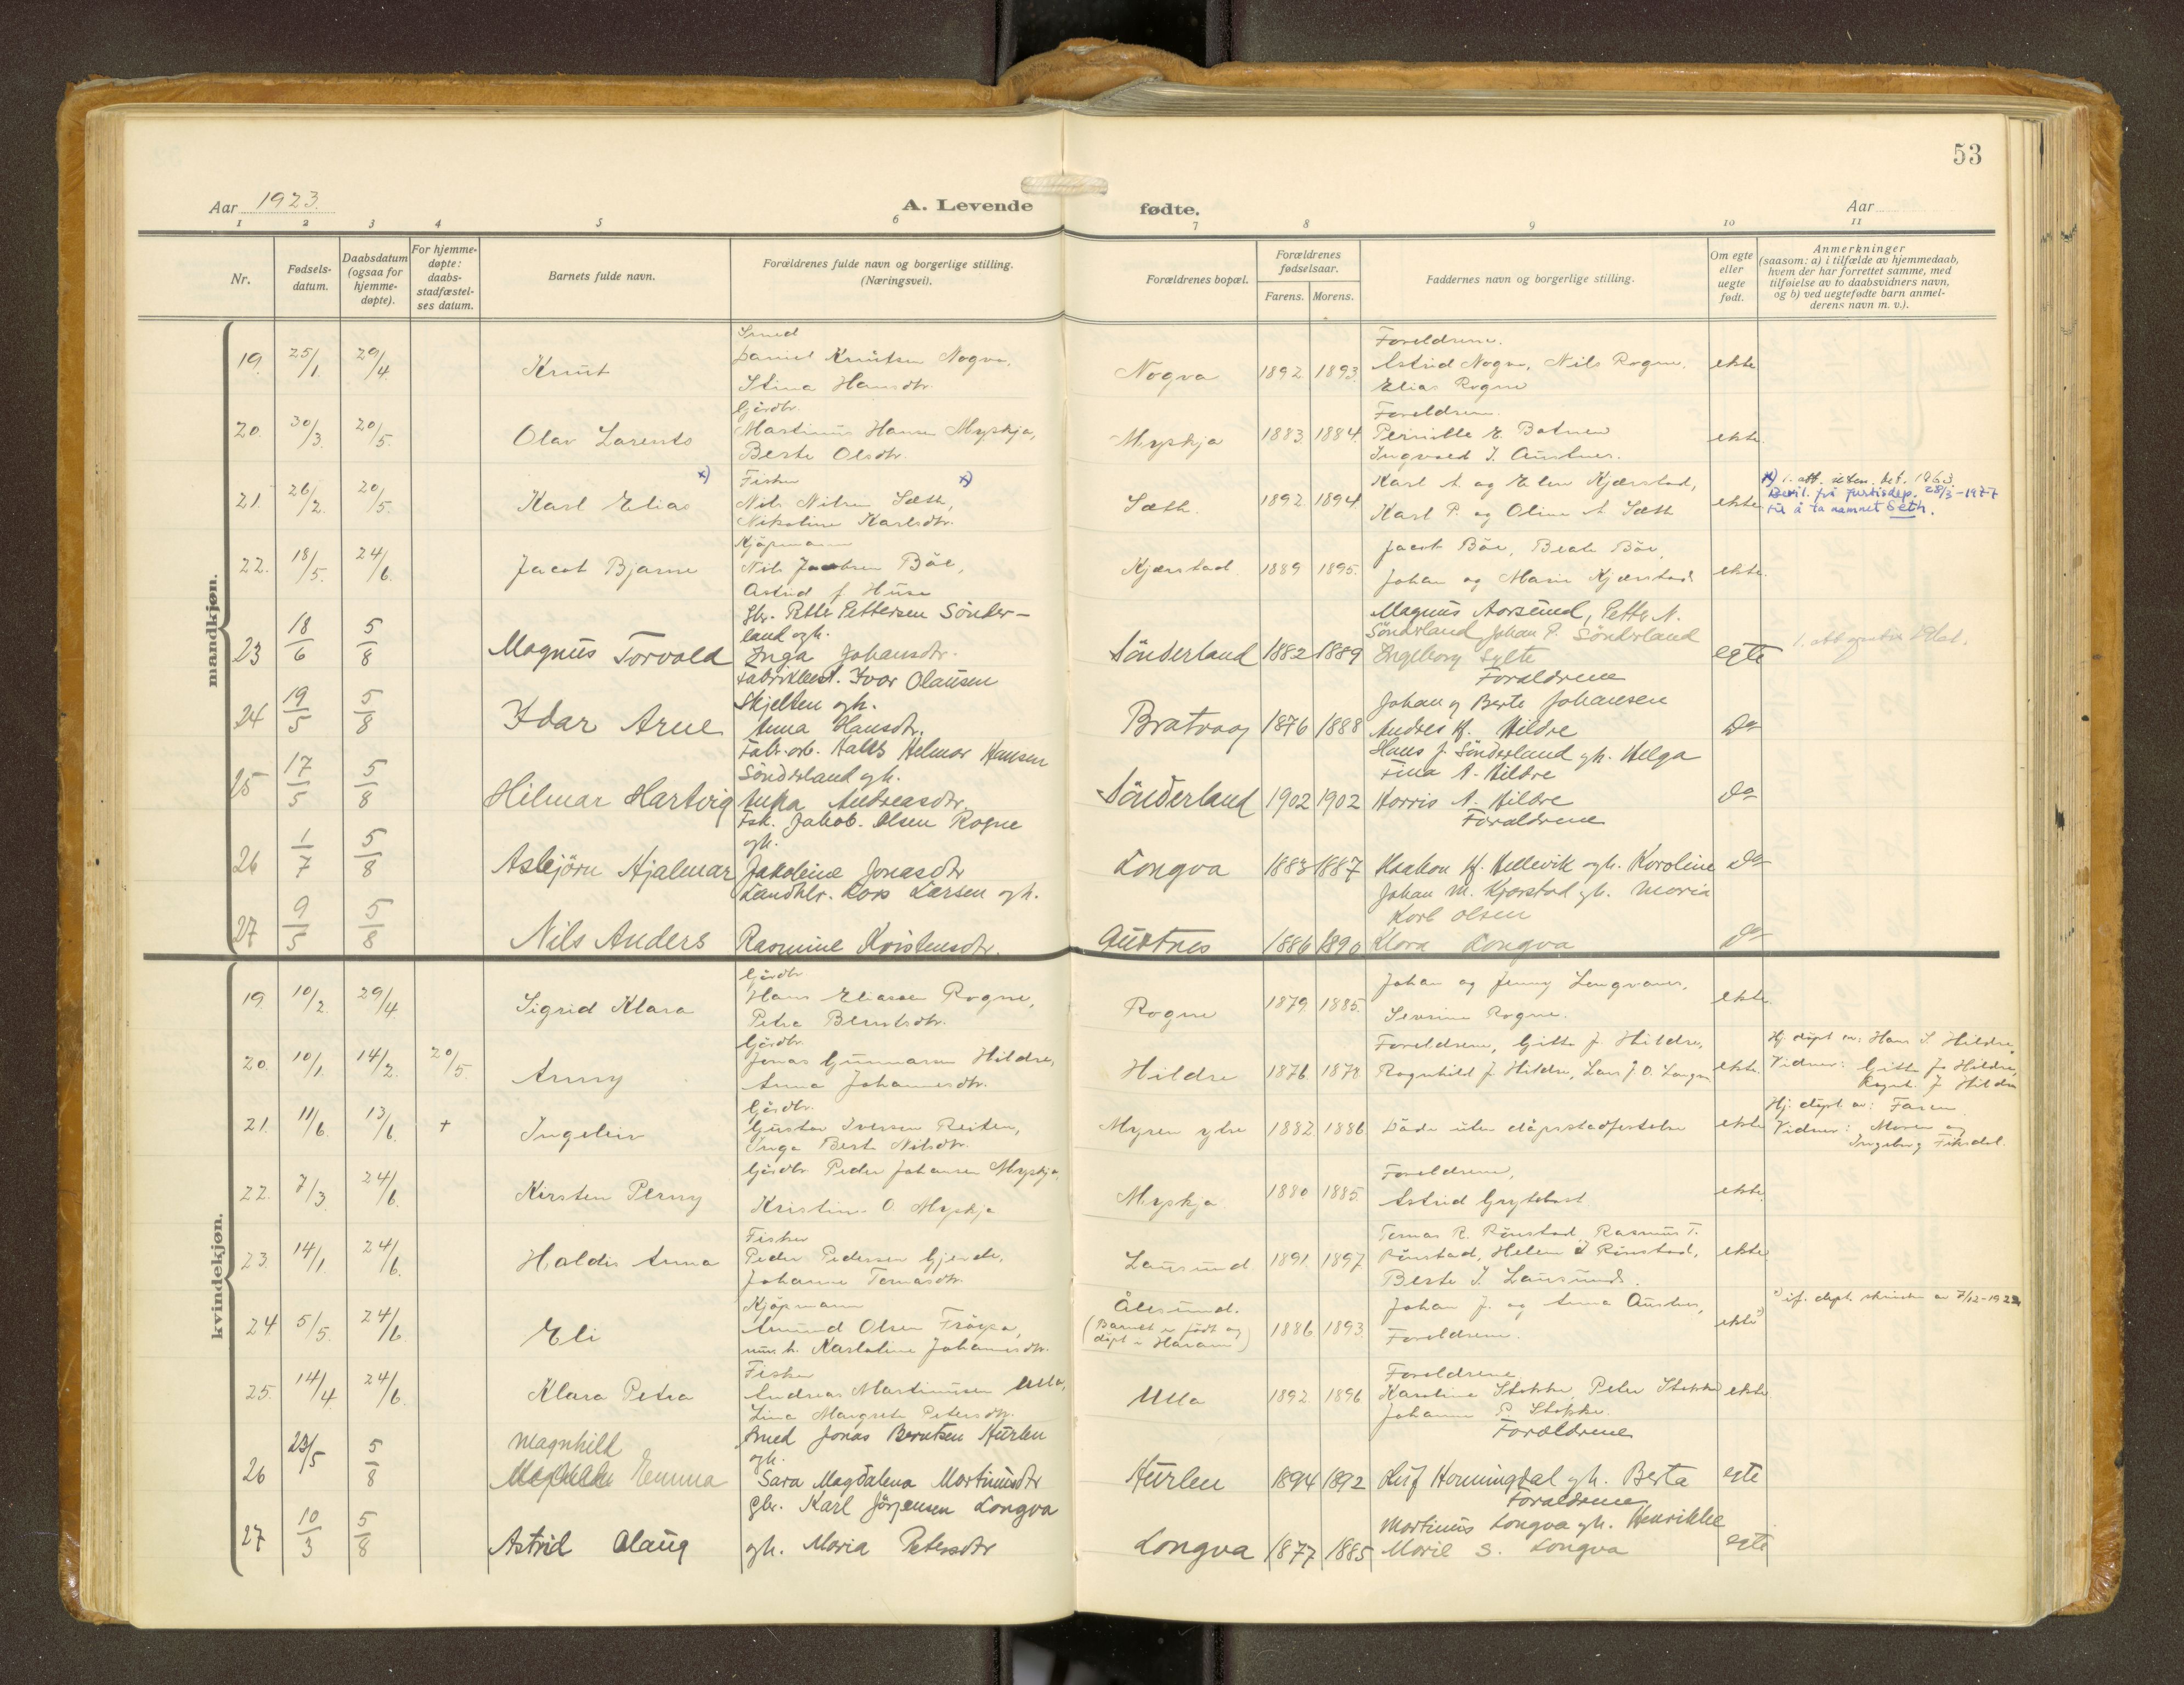 53
Aar 1923.
A. Levende
fødte.
Aar
1 2 3 4 5 6 7 8 9 10 11
Nr.
Fødsels-
datum.
Daabsdatum
(ogsaa for
hjemme-
døpte).
For hjemme-
døpte:
daabs-
stadfæstel-
ses datum.
Barnets fulde navn.
Forældrenes fulde navn og borgerlige stilling.
(Næringsvei).
Forældrenes bopæl.
Forældrenes
fødselsaar.
Farens. Morens.
Faddernes navn og borgerlige stilling.
Om egte
eller
uegte
født.
Anmerkninger
(saasom: a) i tilfælde av hjemmedaab,
hvem der har forrettet samme, med
tilføielse av to daabsvidners navn,
og b) ved uegtefødte barn anmel-
derens navn m. v.).
mandkjøn.
19. 25/1 29/4 Knut
Smed
Daniel Knutsen Nogva.
Stina Hansdtr.
Nogva 1892 1893
Foreldrene.
Astrid Nogva, Nils Rogne,
Elias Rogne
ekte
20. 30/3. 20/5. Olav Larents
Gårdbr.
Martinus Hansen Myskja,
Berte Olsdtr.
Myskja 1883 1884.
Foreldrene.
Pernille E. Batnen
Ingvald I. Austnes.
ekte.
21. 26/2. 20/5. Karl Elias x)
Fisker x)
Nils Nilsen Sæth,
Nikoline Karlsdtr.
Sæth. 1892 1894
Karl A og Elen Kjærstad,
Karl P. og Oline A. Sæth
ekte
x) 1. att. uten. bet. 1963.
Bevil. frå justisdep. 28/3-1977
til å ta namnet Seth.
22. 18/5. 24/6. Jacob Bjarne
Kjøpmann
Nils Jacobsen Bøe,
Astrid f. Huse
Kjærstad 1889 1895.
Jacob Bøe, Beate Bøe,
Johan og Marie Kjærstad.
ekte.
23 18/6 5/8 Magnus Torvald
Gbr. Petter Pettersen Sønder-
land ogh.
Inga Johansdtr.
Sönderland 1882 1889
Magnus Aarsund, Petter N.
Sönderland, Johan P. Sönderland
Ingeborg Sylte
egte
24 19/5 5/8 Idar Arne
Ivar Olausen
Skjelten ogh.
Anna Hansdtr.
Bratvaag 1876 1888
Foraldrene
Johan og Berte Johansen
Andres K. Hildre
Do
25 17/5 5/8 Hilmar Hartvig
Fabr.arb. Hals Helmar Hansen
Sönderland ogh.
Anna Andreasdtr.
Sönderland 1902 1902
Hans J. Sönderland gh. Helga
Fina A. Hildre
Harris A. Hildre
Do
26 1/7 5/8 Asbjörn Hjalmar
Fsk. Jakob. Olsen Rogne
ogh.
Jakobine Jonasdtr
Longva 1883 1887
Foraldrene
Haakon K. Hellevik ogh. Karoline
Do
27 9/5 5/8 Nils Anders
Landhlr. Lars Larsen ogh.
Rasmine Kristensdtr.
Austnes 1886 1890
Johan M. Kjærstad gh. Maria
Karl Olsen
Klara Longva
Do
kvindekjøn.
19 10/2. 29/4. Sigrid Klara
Gårdbr
Hans Eliassen Rogne,
Petra Berntsdtr.
Rogne 1879 1885.
Johan og Jenny Longvanes,
Severine Rogne.
ekte.
20. 10/1. 14/2. 20/5. Anny
Gårdbr.
Jonas Gunnarsen Hildre,
Anna Johannesdtr.
Hildre 1876 1878
Foreldrene, Gitte J. Hildre,
Ragnhild J. Hildre, Lars J. O. Longva
ekte.
Hj. døpt av: Hans S. Hildre,
Vidner: Gitte J. Hildre,
Ragnh. J. Hildre
21. 11/6. 13/6. + Ingeleiv
Gårdbr.
Gustav Iversen Reiten,
Inga Berte Nilsdtr.
Myren ytre 1882 1886
Døde uten dåpsstadfestelse
ekte
Hj. døpt av: Faren
Vidner: Moren og
Ingeborg Fiksdal.
22. 7/3. 24/6. Kirsten Perny
Gårdbr. Peder Johansen Myskja,
Kristine O. Myskja
Myskja 1880 1885.
Foreldrene,
Astrid Grytebust
ekte.
23. 14/1. 24/6. Haldis Anna
Fisker
Peder Pedersen Gjerde,
Johanne Tomasdtr.
Lausund 1891 1897
Tomas R. Rønstad, Rasmus T.
Rønstad, Helene I Rønstad,
Berte I. Lausund.
ekte.
24 5/5. 24/6 Eli
Kjøpmann
Amund Olsen Frøysa,
Karlotine Johannesdtr.
Ålesund.
(Barnet er født og
døpt i Haram)
1886 1893.
Johan J. og Anna Austnes,
Foreldrene.
ekte
24. if. døpt. av 7/12-1922
25. 14/4. 24/6. Klara Petra
Fisker
Andreas Martinusen Ulla,
Lina Margrete Petersdtr.
Ulla 1892 1896
Foreldrene,
Karoline Stokke, Peter Stokke
Johanne P. Stokke.
ekte
26 23/5 5/8 Magnhild
Emma
Smed Jonas Berntsen Hurlen
ogh.
Sara Magdalena Martinusdtr
Hurlen 1894 1892
Foraldrene
Leif Horningdal gh. Berta
egte
27 10/3 5/8 Astrid Olaug
Gbr. Karl Jörgensen Longva
ogh. Maria Petersdtr
Longva 1877 1885
Foraldrene
Martinus Longva gh. Henrikke
Marie S. Longva
egte